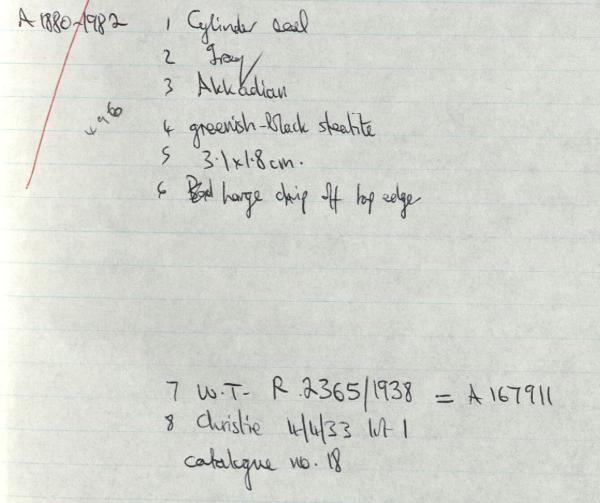 A 1880-1982 1 Cylinder seal
2 Iraq
3 Akkadian
4 greenish-black steatite
5 3.1 x 1.8 cm.
6 Large chip off top edge
7 W.T- R.2365/1938 = A 167911
8 Christie 4/4/33 lot 1
catalogue no. 18